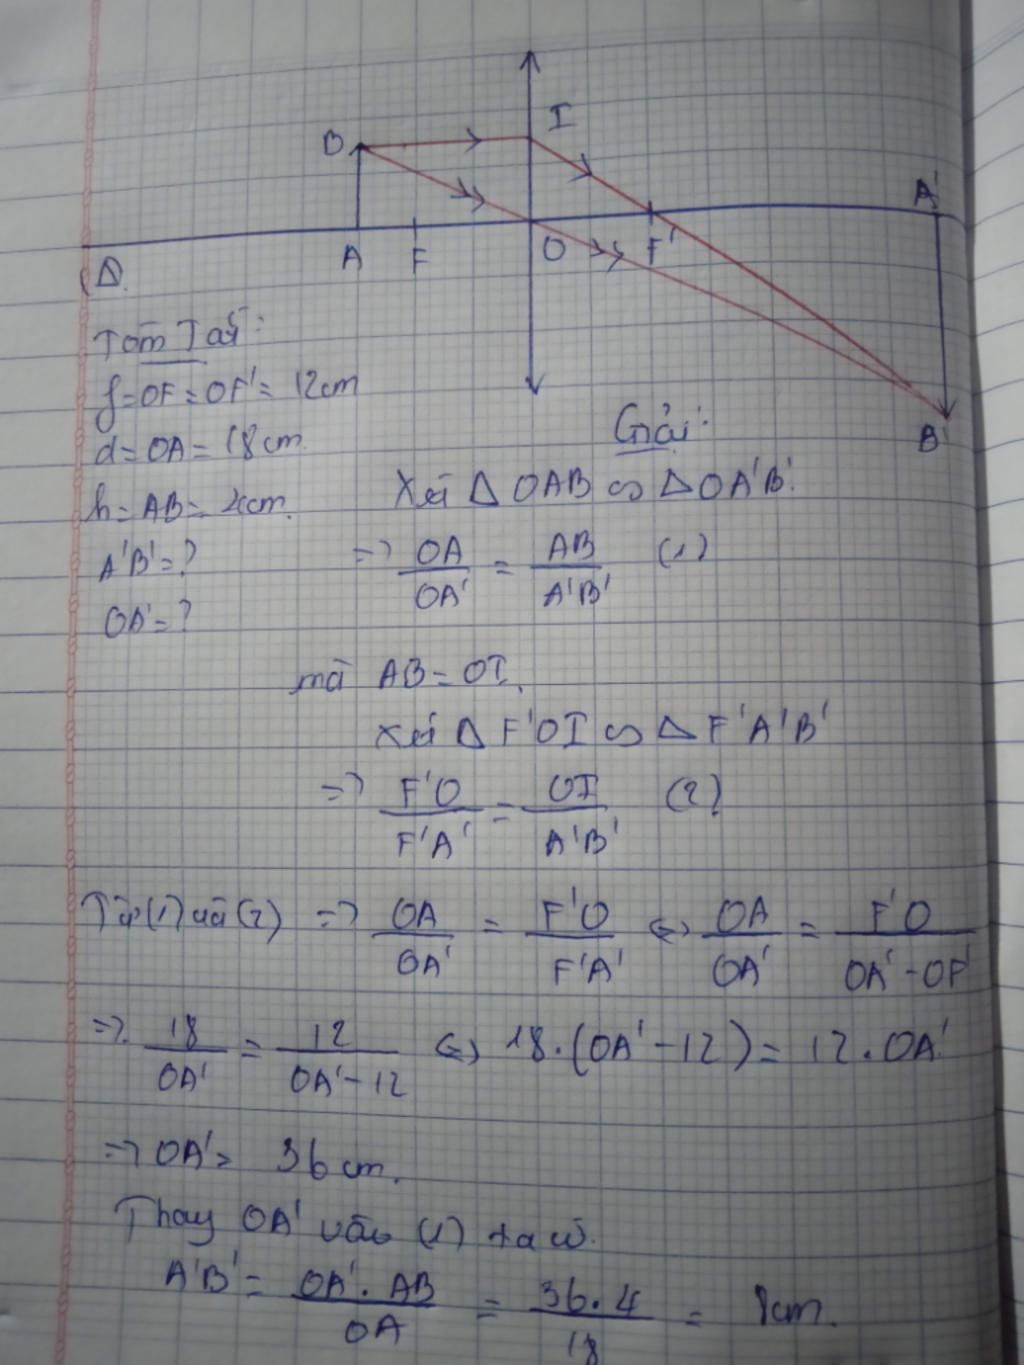 I
B
A'
A F O F'
(Δ)
B'
Tóm Tắt:
f=OF=OF'= 12cm
d=OA= 18cm.
h=AB= 4cm.
A'B'=?
OA'=?
Giải:
Xét Δ OAB ∽ Δ OA'B'.
=> OA/OA' = AB/A'B' (1)
mà AB = OI,
Xét Δ F'OI ∽ Δ F'A'B'
=> F'O/F'A' = OI/A'B' (2)
Từ (1) và (2) => OA/OA' = F'O/F'A' <=> OA/OA' = F'O/OA'-OF'
=> 18/OA' = 12/OA'-12 <=> 18.(OA'-12) = 12.OA'
=> OA'= 36cm.
Thay OA' vào (1) ta có.
A'B' = OA'.AB/OA = 36.4/18 = 8cm.